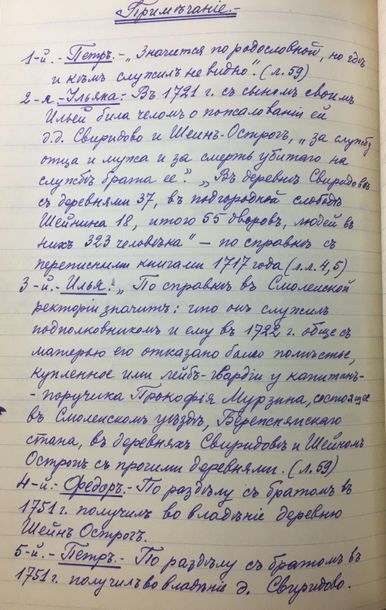 Примѣчаніе.-
1-й.- Петръ.- „Значится по родословной, но гдѣ
и кѣмъ служилъ не видно." (л.59)
2-я.- Ульяна: Въ 1721 г. съ сыномъ своимъ
Ильей била челомъ о пожалованіи ей
д.д. Свиридово и Шеинъ-Острогъ, „за службу
отца и мужа и за смерть убитаго на
службѣ брата ее." „Въ деревнѣ Свиридовѣ
съ деревнями 37, въ подгородной слободѣ
Шейнина 18, итого 55 дворовъ, людей въ
нихъ 323 человѣка" – по справкѣ съ
переписными книгами 1717 года (л.л. 4,5)
3-й.- Илья: „По справкѣ въ Смоленской
ректоріи значитъ: что онъ служилъ
подполковникомъ и ему въ 1722 г. обще съ
матерью его отказано было помѣстье,
купленное ими лейбъ-гвардіи у капитанъ-
-поручика Прокофія Мурзина, состоящее
въ Смоленскомъ уѣздѣ, Беретнянскаго
стана, въ деревняхъ Свиридовѣ и Шейномъ
Острогѣ съ прочими деревнями. (л.59)
4-й.- Ѳедоръ.- По раздѣлу съ братомъ въ
1751 г. получилъ во владѣніе деревню
Шейнъ Острогъ.
5-й.- Петръ.- По раздѣлу съ братомъ въ
1751 г. получилъ во владѣніе д. Свиридово.